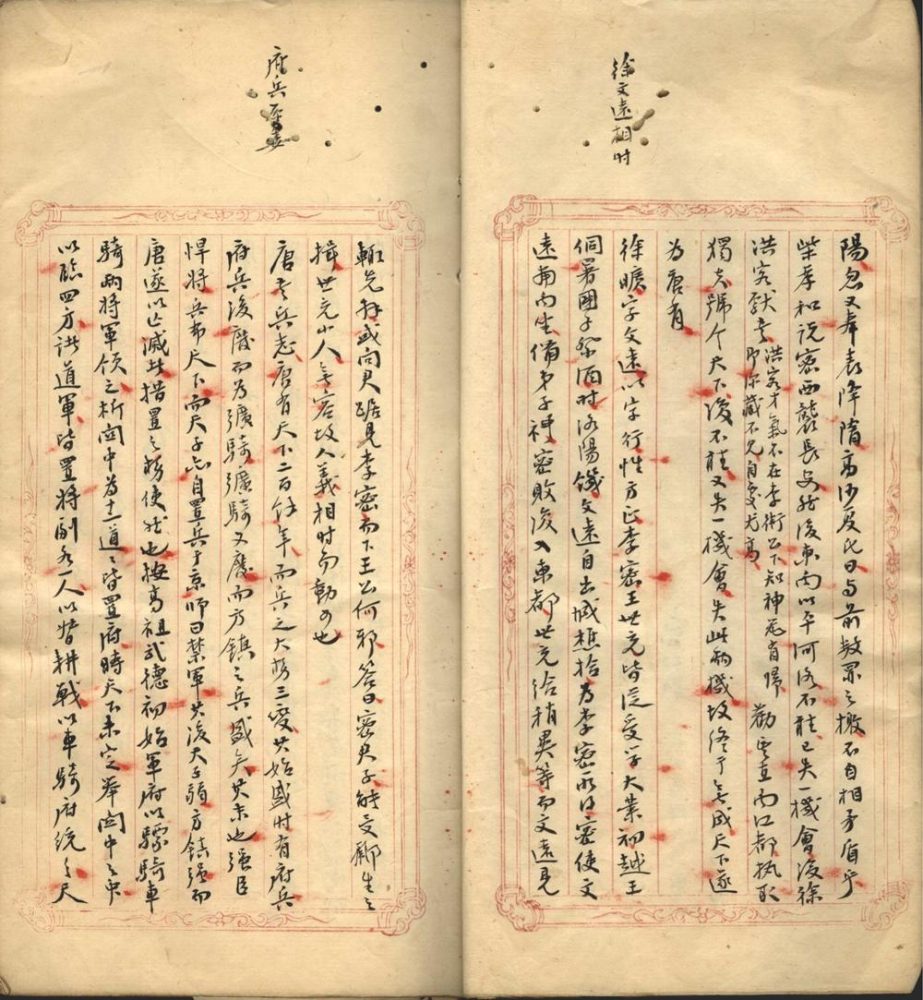 徐文遠相时
陽忽又奉表降隋此日与前数罪之檄不自相矛盾乎
柴孝和说密西襲長安然後東向以平河洛不能已失一機會後徐
洪客献書
洪客才氣不在李術公下知神尧有歸
即深藏不見自处尤高
勸其直向江都執取
獨夫號令天下後不能又失一機會失此兩機故终于無成天下遂
為唐有
徐曠字文遠以字行性方正李密王世充皆從受学大業初越王
侗署國子祭酒时洛陽饑文遠自出城樵拾為李密所得密使文
遠南向坐備弟子禮密敗後入東都世充给稍異等而文遠見
府兵
輒先拜或问君踞見李密而下王公何邪答曰密君子能受酈生之
揖世充小人無容故人義相时而動可也
唐書兵志唐有天下二百餘年而兵之大势三变其始盛时有府兵
府兵後廢而為彍騎彍騎又廢而方鎮之兵盛矣其末也强臣
悍将兵布天下而天子亦自置兵于京师曰禁軍其後天子弱方鎮强而
唐遂以亡滅此措置之势使然也按高祖武德初始軍府以驃騎車
騎兩将軍领之析関中為十二道々皆置府時天下未定举関中之衆
以臨四方諸道軍皆置将副各一人以督耕戰以車騎府统之天